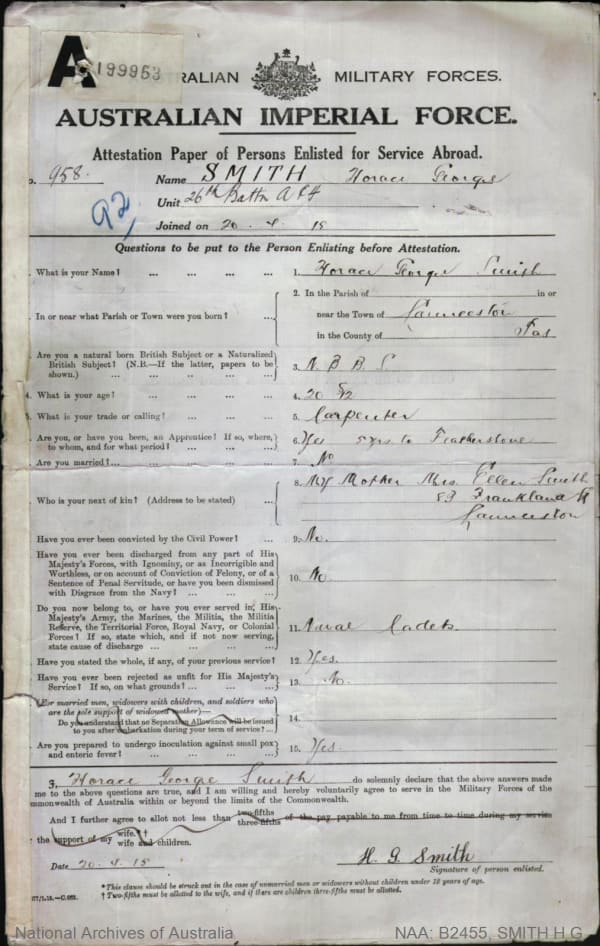 A 199953
RALIAN MILITARY FORCES.
AUSTRALIAN IMPERIAL FORCE.
Attestation Paper of Persons Enlisted for Service Abroad.
o. 958. Name SMITH Horace George
92, Unit 26th Battn AIF
Joined on 20. 4. 15
Questions to be put to the Person Enlisting before Attestation.
. What is your Name? ... ... ... ... 1. Horace George Smith
. In or near what Parish or Town were you born? ... 2. In the Parish of in or
near the Town of Launceston
in the County of Tas
. Are you a natural born British Subject or a Naturalized
British Subject? (N.B.—If the latter, papers to be
shown.) ... ... ... ... ... 3. N. B B. S.
4. What is your age? ... ... ... ... 4. 20
5. What is your trade or calling? ... ... ... 5. Carpenter
. Are you, or have you been, an Apprentice? If so, where,
to whom, and for what period? ... ... ... 6. Yes 5 yrs to Featherstone
. Are you married?... ... ... ... ... 7. No
. Who is your next of kin? (Address to be stated) ... 8. My Mother Mrs. Ellen Smith
83 Frankland St
Launceston
Have you ever been convicted by the Civil Power? ... 9. No.
Have you ever been discharged from any part of His
Majesty's Forces, with Ignominy, or as Incorrigible and
Worthless, or on account of Conviction of Felony, or of a
Sentence of Penal Servitude, or have you been dismissed
with Disgrace from the Navy? ... ... ... 10. No
Do you now belong to, or have you ever served in, His
Majesty's Army, the Marines, the Militia, the Militia
Reserve, the Territorial Force, Royal Navy, or Colonial
Forces? If so, state which, and if not now serving,
state cause of discharge ... ... ... ... 11. Naval Cadets.
. Have you stated the whole, if any, of your previous service? 12. Yes.
. Have you ever been rejected as unfit for His Majesty's
Service? If so, on what grounds? ... ... ... 13. No.
(For married men, widowers with children, and soldiers who
are the sole support of widowed mother)—
Do you understand that no Separation Allowance will be issued
to you after embarkation during your term of service?... 14.
. Are you prepared to undergo inoculation against small pox
and enteric fever? ... ... ... ... 15. Yes.
I, Horace George Smith do solemnly declare that the above answers made
me to the above questions are true, and I am willing and hereby voluntarily agree to serve in the Military Forces of the
mmonwealth of Australia within or beyond the limits of the Commonwealth.
And I further agree to allot not less than two-fifths three-fifths of the pay payable to me from time to time during my service
the support of my wife.† wife and children.
Date 20. 4. 15 H. G. Smith
Signature of person enlisted.
*This clause should be struck out in the case of unmarried men or widowers without children under 18 years of age.
† Two-fifths must be allotted to the wife, and if there are children three-fifths must be allotted.
National Archives of Australia NAA: B2455, SMITH H G